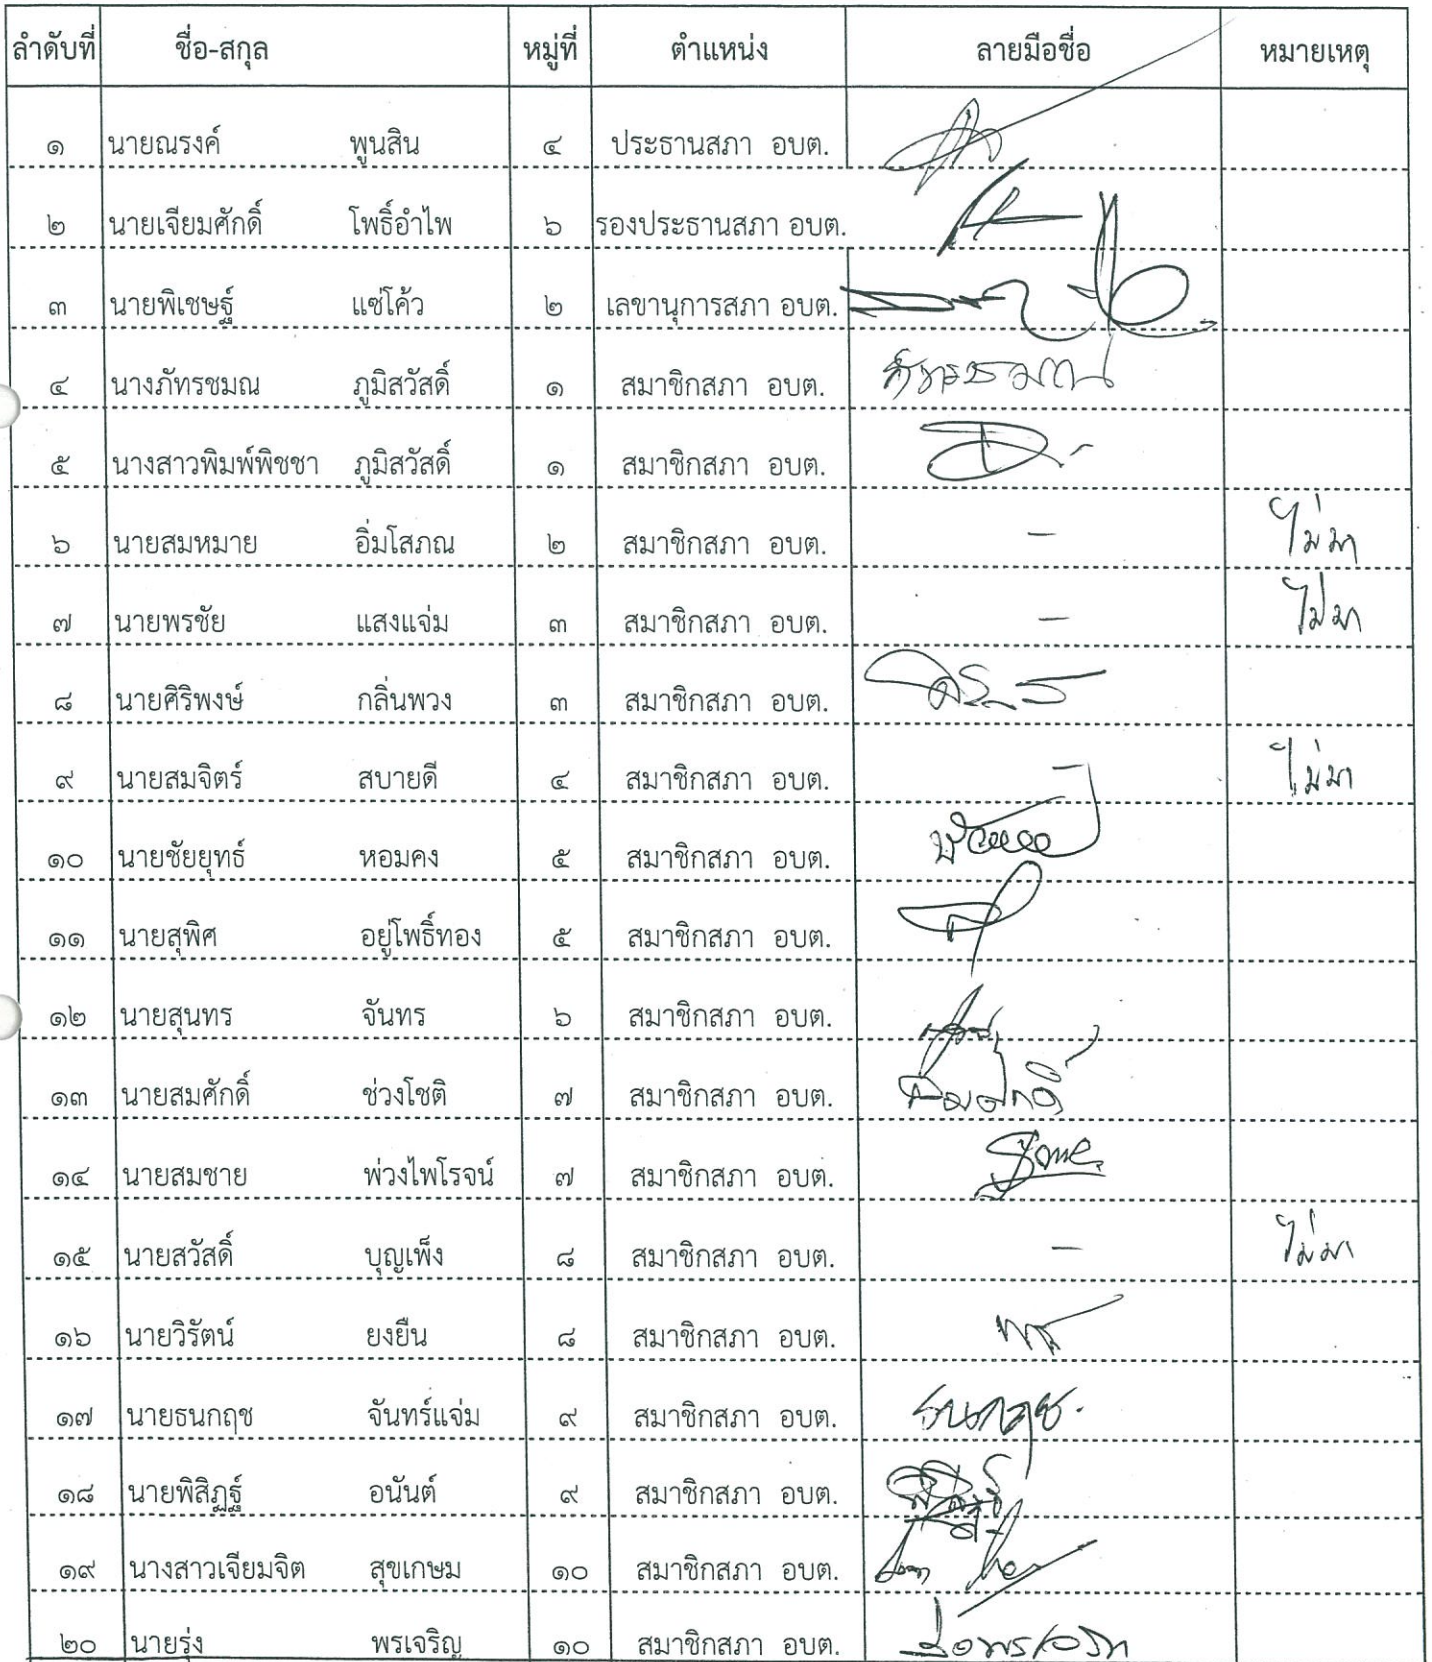 ลำดับที่ ชื่อ-สกุล หมู่ที่ ตำแหน่ง ลายมือชื่อ หมายเหตุ
๑ นายณรงค์ พูนสิน ๔ ประธานสภา อบต.
๒ นายเจียมศักดิ์ โพธิ์อำไพ ๖ รองประธานสภา อบต.
๓ นายพิเชษฐ์ แซ่โค้ว ๒ เลขานุการสภา อบต.
๔ นางภัทรชมณ ภูมิสวัสดิ์ ๑ สมาชิกสภา อบต.
๕ นางสาวพิมพ์พิชชา ภูมิสวัสดิ์ ๑ สมาชิกสภา อบต.
๖ นายสมหมาย อิ่มโสภณ ๒ สมาชิกสภา อบต. - ไม่มา
๗ นายพรชัย แสงแจ่ม ๓ สมาชิกสภา อบต. - ไม่มา
๘ นายศิริพงษ์ กลิ่นพวง ๓ สมาชิกสภา อบต.
๙ นายสมจิตร์ สบายดี ๔ สมาชิกสภา อบต. - ไม่มา
๑๐ นายชัยยุทธ์ หอมคง ๕ สมาชิกสภา อบต.
๑๑ นายสุพิศ อยู่โพธิ์ทอง ๕ สมาชิกสภา อบต.
๑๒ นายสุนทร จันทร ๖ สมาชิกสภา อบต.
๑๓ นายสมศักดิ์ ช่วงโชติ ๗ สมาชิกสภา อบต. สมศักดิ์
๑๔ นายสมชาย พ่วงไพโรจน์ ๗ สมาชิกสภา อบต.
๑๕ นายสวัสดิ์ บุญเพ็ง ๘ สมาชิกสภา อบต. - ไม่มา
๑๖ นายวิรัตน์ ยงยืน ๘ สมาชิกสภา อบต.
๑๗ นายธนกฤช จันทร์แจ่ม ๙ สมาชิกสภา อบต. ธนกฤช
๑๘ นายพิสิฏฐ์ อนันต์ ๙ สมาชิกสภา อบต.
๑๙ นางสาวเจียมจิต สุขเกษม ๑๐ สมาชิกสภา อบต.
๒๐ นายรุ่ง พรเจริญ ๑๐ สมาชิกสภา อบต.